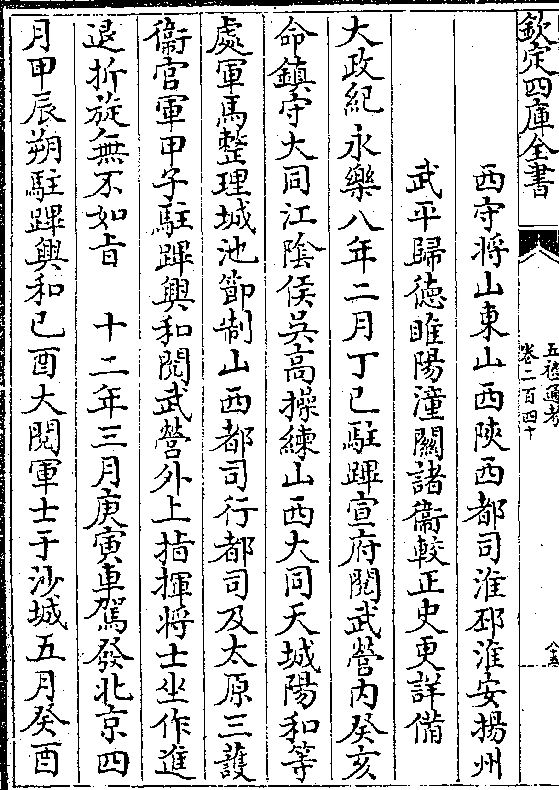 欽定四庫全書
五禮通考
卷二百四十
西守將山東山西陜西都司淮邳淮安揚州
武平歸徳睢陽潼關諸衞較正史更詳備
大政紀永樂八年二月丁巳駐蹕宣府閱武營内癸亥
命鎮守大同江隂侯吳高操練山西大同天城陽和等
處軍馬整理城池節制山西都司行都司及太原三護
衞官軍甲子駐蹕興和閱武營外上指揮將士坐作進
退折旋無不如㫖　十二年三月庚寅車駕發北京四
月甲辰朔駐蹕興和己酉大閱軍士于沙城五月癸酉